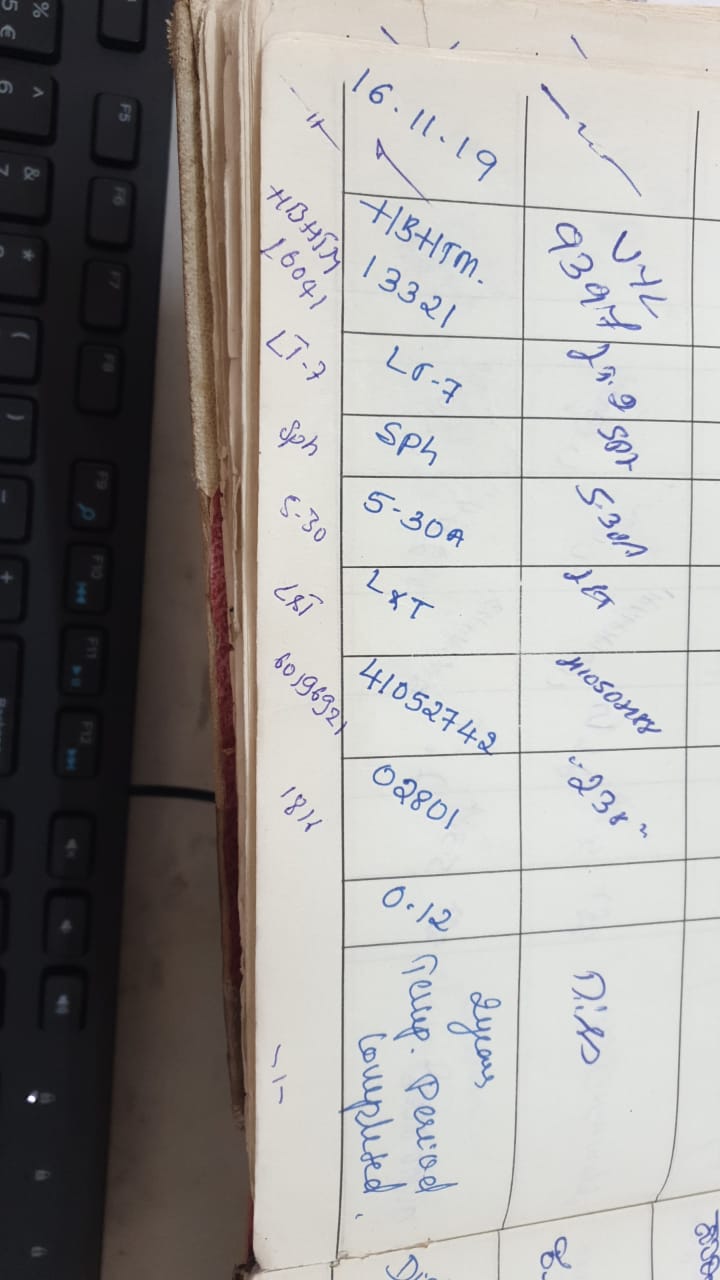 16.11.19
HBHTM.
13321
LT-7
Sph
5-30A
LXT
41052742
02801
0.12
2years
Temp. Period
Completed.
VHL
9397
LT-2
5-30A
"238"
HBHTM
26041
LT-7
Sph
5-30
LXT
60196921
F5
F6
F7
F8
F9
F10
F11
F12